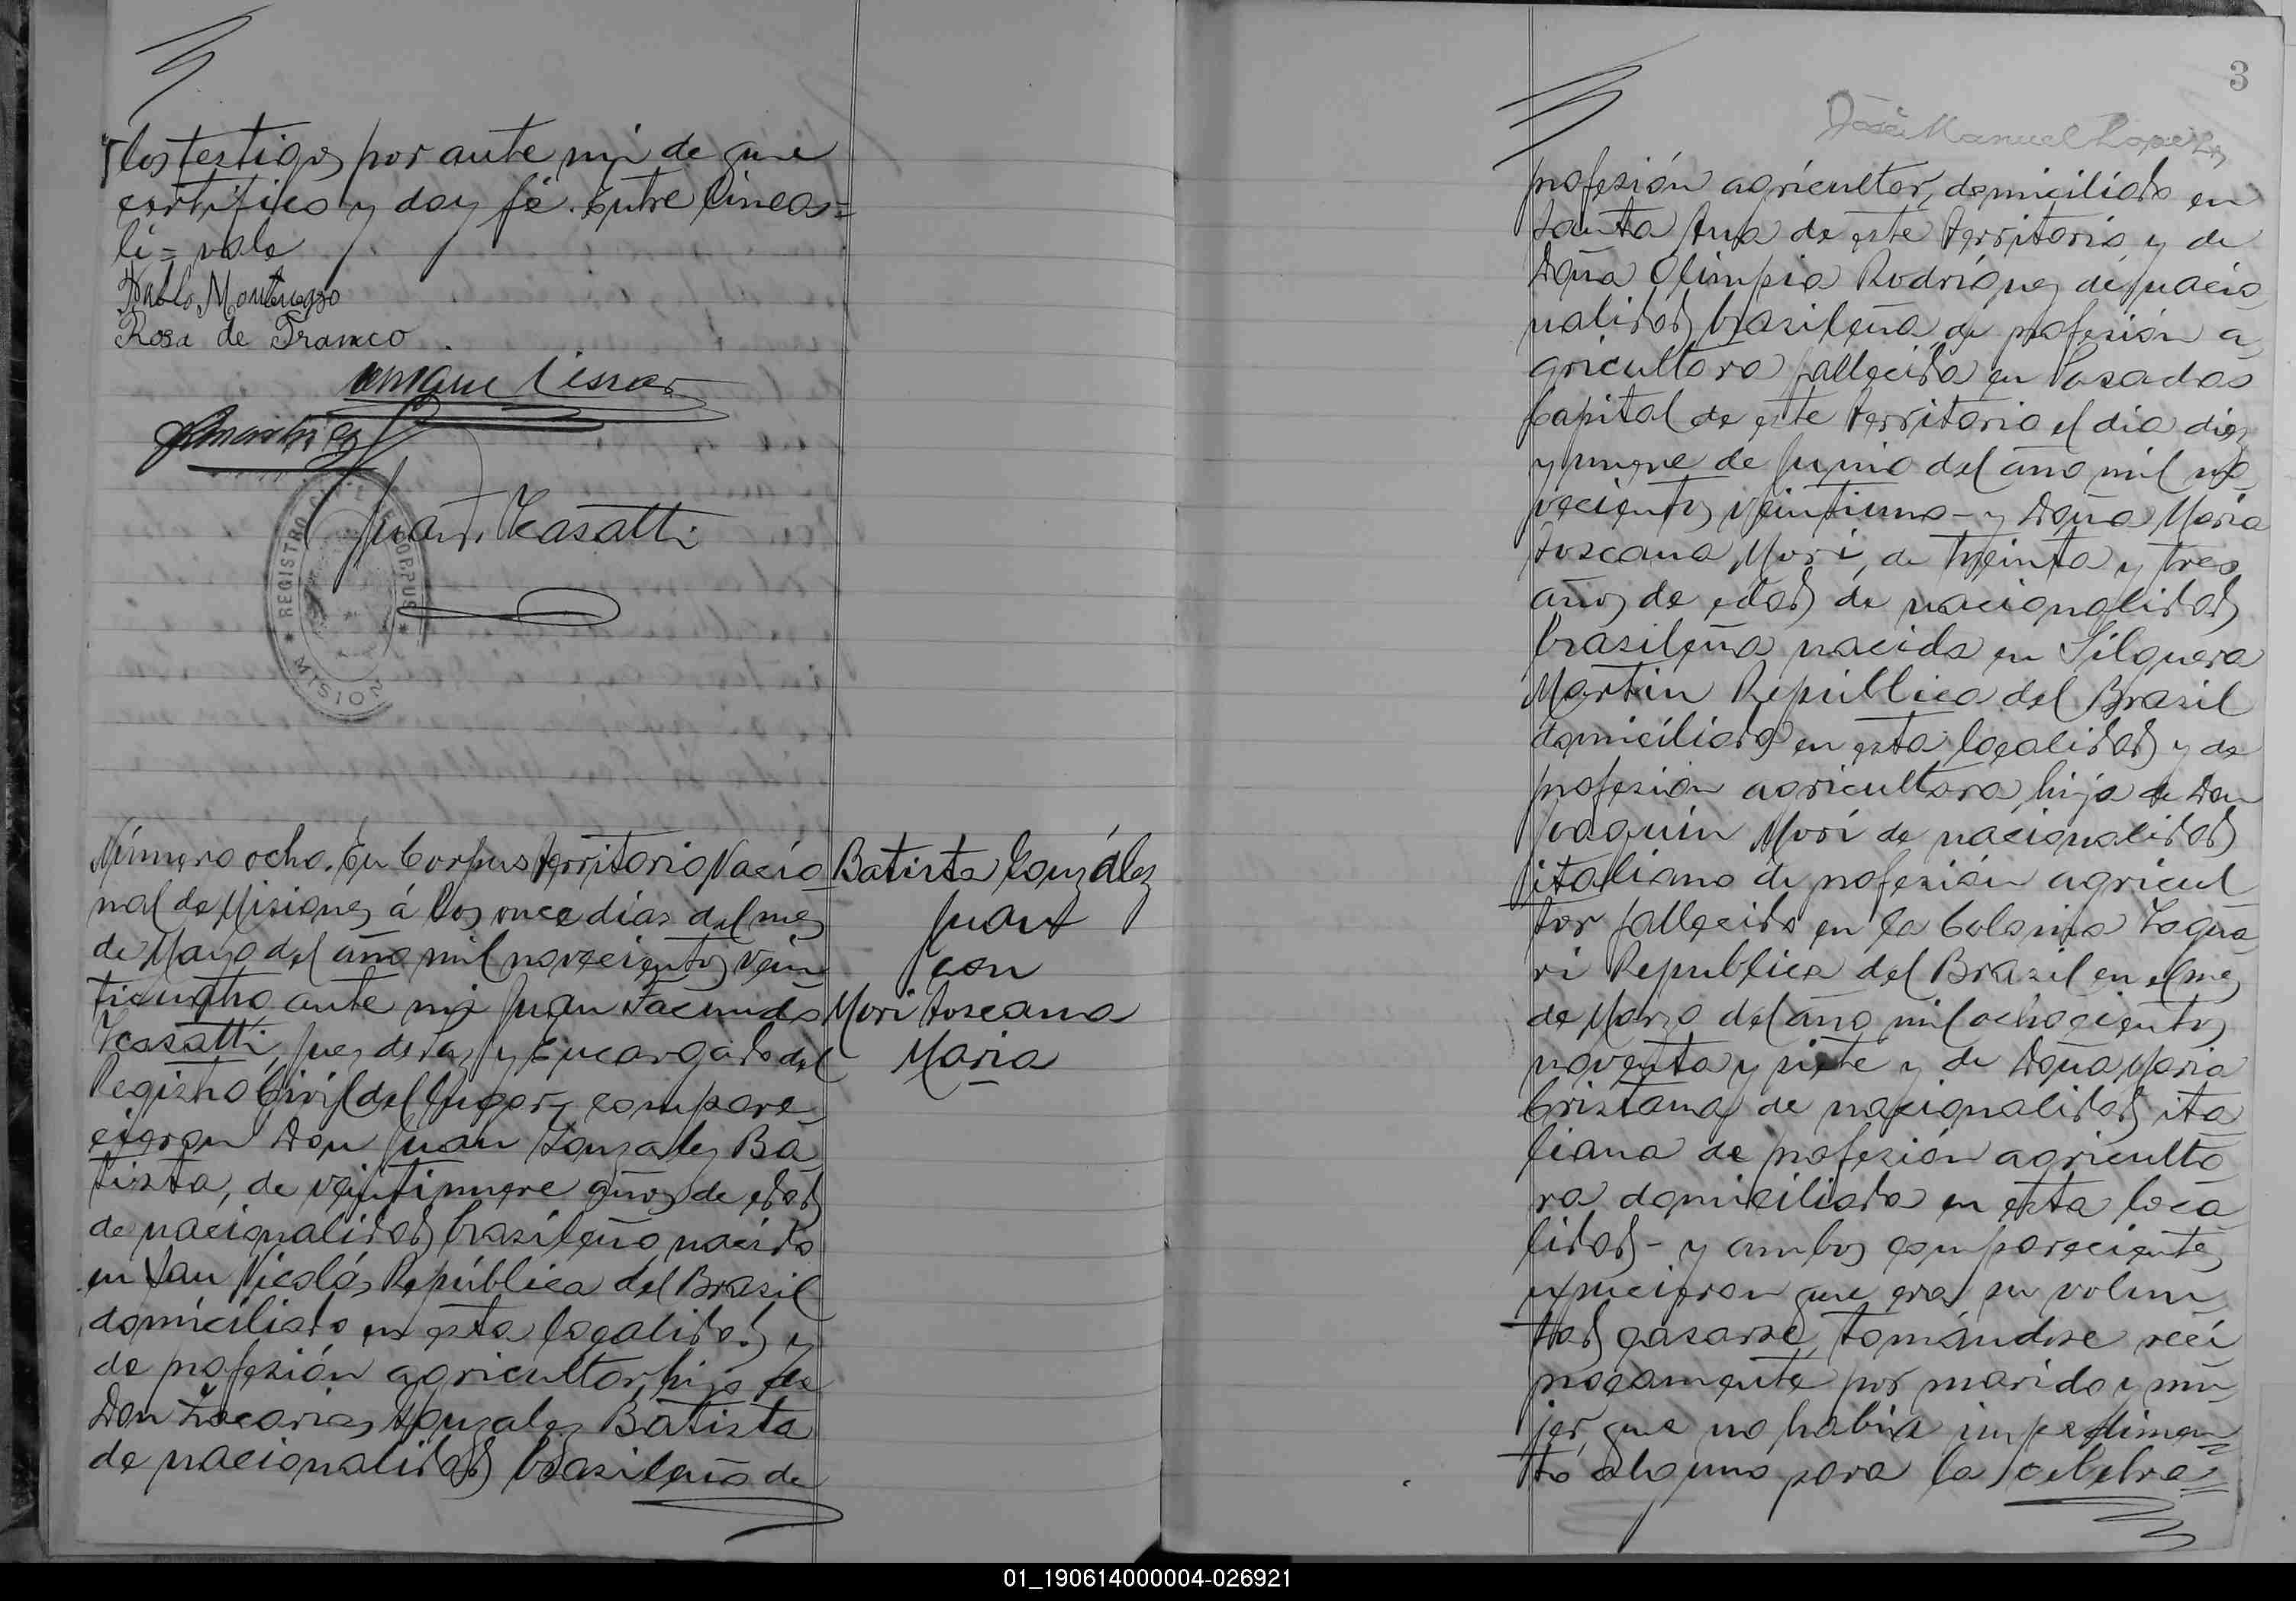 los testigos por ante mi de que
certifico y doy fé. Entre lineas=
li = vale
Pablo Montenegro
Rosa de Franco
Juan F. Casatti
REGISTRO CIVIL
CORPUS
MISIONES
Número ocho. En Corpus territorio Nacio
nal de Misiones á los once dias del mes
de Mayo del año mil novecientos vein
ticuatro ante mi Juan Facundo
Casatti, Juez de Paz y Encargado del
Registro Civil del lugar, compare
cieron Don Juan Gonzalez Ba
tista, de veintinueve años de edad
de nacionalidad brasileño, nacido
en San Nicolás República del Brasil
domiciliado en esta localidad y
de profesión agricultor, hijo de
Don Zacarias Gonzalez Batista
de nacionalidad brasileño de
Batista González
Juan
con
Mori Toscana
Maria
3
José Manuel Lopez
profesión agricultor, domiciliado en
Santa Ana de este territorio y de
Doña Olimpia Rodríguez de nacio
nalidad brasileña de profesión a
gricultora fallecida en Posadas
Capital de este territorio el dia diez
y nueve de Junio del año mil no
vecientos veintiuno - y Doña Maria
Toscana Mori, de treinta y tres
años de edad de nacionalidad
brasileña nacida en Silquera
Martin República del Brasil
domiciliada en esta localidad y de
profesión agricultora, hija de Don
Joaquín Mori de nacionalidad
italiano de profesión agricul
tor fallecido en la Colonia Taqua
ri Republica del Brasil en el mes
de Marzo del año mil ochocientos
noventa y siete y de Doña Maria
Cristana de nacionalidad ita
liana de profesión agriculto
ra domiciliada en esta loca
lidad - y ambos comparecientes
expucieron que era su volun
tad casarse, tomándose recí
procamente por marido y mu
jer, que no habia impedimen=
to alguno para la celebra=
01_190614000004-026921